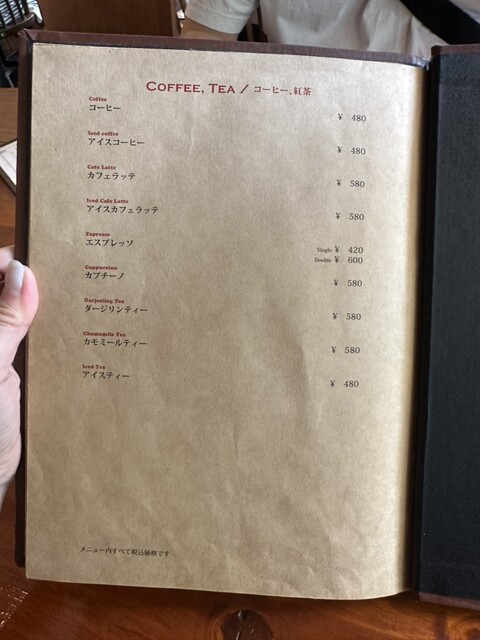 COFFEE, TEA / コーヒー、紅茶
Coffee
コーヒー
¥ 480
Iced coffee
アイスコーヒー
¥ 480
Cafe Latte
カフェラッテ
¥ 580
Iced Cafe Latte
アイスカフェラッテ
¥ 580
Espresso
エスプレッソ
Single ¥ 420
Double ¥ 600
Cappuccino
カプチーノ
¥ 580
Darjeeling Tea
ダージリンティー
¥ 580
Chamomile Tea
カモミールティー
¥ 580
Iced Tea
アイスティー
¥ 480
メニュー内すべて税込価格です